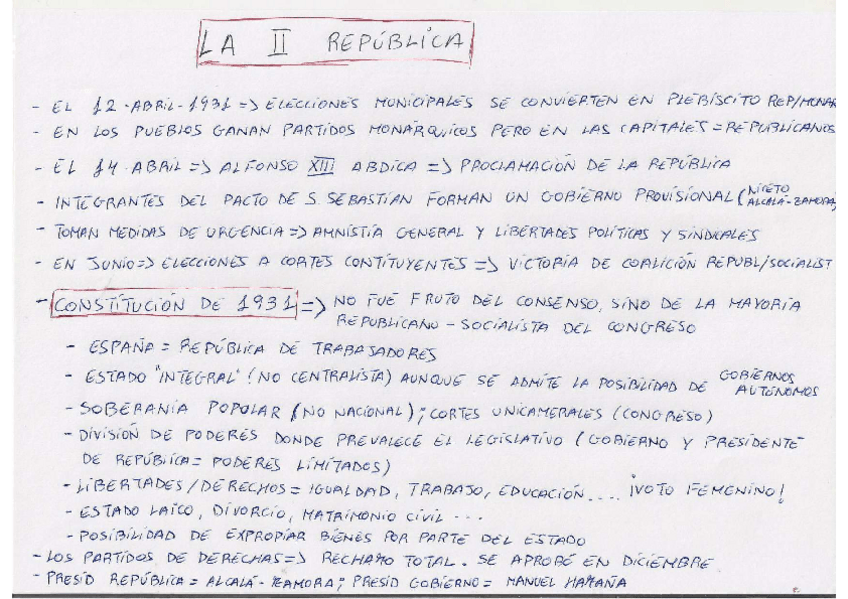 LA II REPÚBLICA
- EL 12-ABRIL-1931 => ELECCIONES MUNICIPALES SE CONVIERTEN EN PLEBISCITO REP/MONAR
- EN LOS PUEBLOS GANAN PARTIDOS MONÁRQUICOS PERO EN LAS CAPITALES = REPUBLICANOS
- EL 14-ABRIL => ALFONSO XIII ABDICA => PROCLAMACIÓN DE LA REPÚBLICA
- INTEGRANTES DEL PACTO DE S. SEBASTIÁN FORMAN UN GOBIERNO PROVISIONAL (NICETO ALCALÁ-ZAMORA)
- TOMAN MEDIDAS DE URGENCIA => AMNISTÍA GENERAL Y LIBERTADES POLÍTICAS Y SINDICALES
- EN JUNIO => ELECCIONES A CORTES CONSTITUYENTES => VICTORIA DE COALICIÓN REPUBL/SOCIALIST
- CONSTITUCIÓN DE 1931 => NO FUE FRUTO DEL CONSENSO, SINO DE LA MAYORÍA
REPUBLICANO - SOCIALISTA DEL CONGRESO
- ESPAÑA = REPÚBLICA DE TRABAJADORES
- ESTADO "INTEGRAL" (NO CENTRALISTA) AUNQUE SE ADMITE LA POSIBILIDAD DE GOBIERNOS AUTÓNOMOS
- SOBERANÍA POPULAR (NO NACIONAL); CORTES UNICAMERALES (CONGRESO)
- DIVISIÓN DE PODERES DONDE PREVALECE EL LEGISLATIVO (GOBIERNO Y PRESIDENTE
DE REPÚBLICA = PODERES LIMITADOS)
- LIBERTADES/DERECHOS = IGUALDAD, TRABAJO, EDUCACIÓN.... ¡VOTO FEMENINO!
- ESTADO LAICO, DIVORCIO, MATRIMONIO CIVIL ...
- POSIBILIDAD DE EXPROPIAR BIENES POR PARTE DEL ESTADO
- LOS PARTIDOS DE DERECHAS => RECHAZO TOTAL. SE APROBÓ EN DICIEMBRE
- PRESID REPÚBLICA = ALCALÁ-ZAMORA; PRESID GOBIERNO = MANUEL